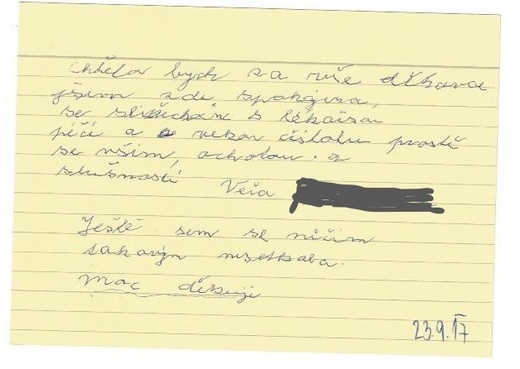 chtěla bych za vše děkovat
jsem zde spokojena,
se slušechání s lékařsa
péčí a velkou čistotu prostě
se vším, ochotou a
slušností Věra
Ještě sem se ničím
takovým nesetkala.
Moc děkuji
23.9.17